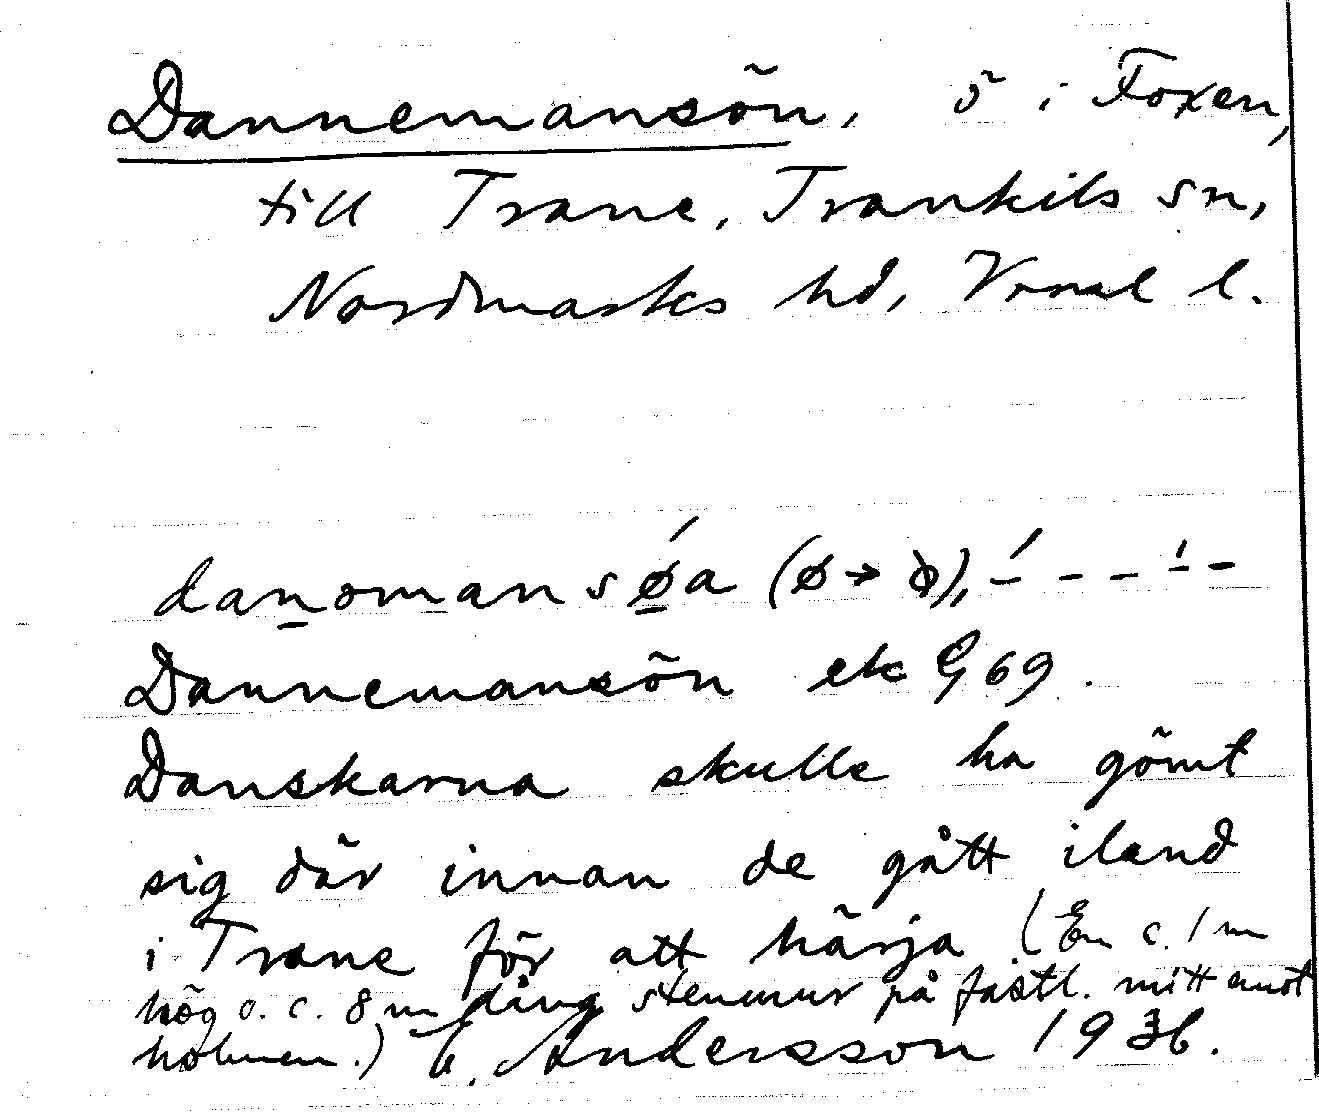 Dannemansön, ö i Foxen,
till Trane, Trankils sn,
Nordmarks hd, Vrml l.
danomansøa (ø → ),
Dannemansön ek G 69.
Danskarna skulle ha gömt
sig där innan de gått iland
i Trane för att härja (En c. 1 m
hög o. c. 8 m lång stenmur på fastl. mitt emot
holmen.) Andersson 1936.